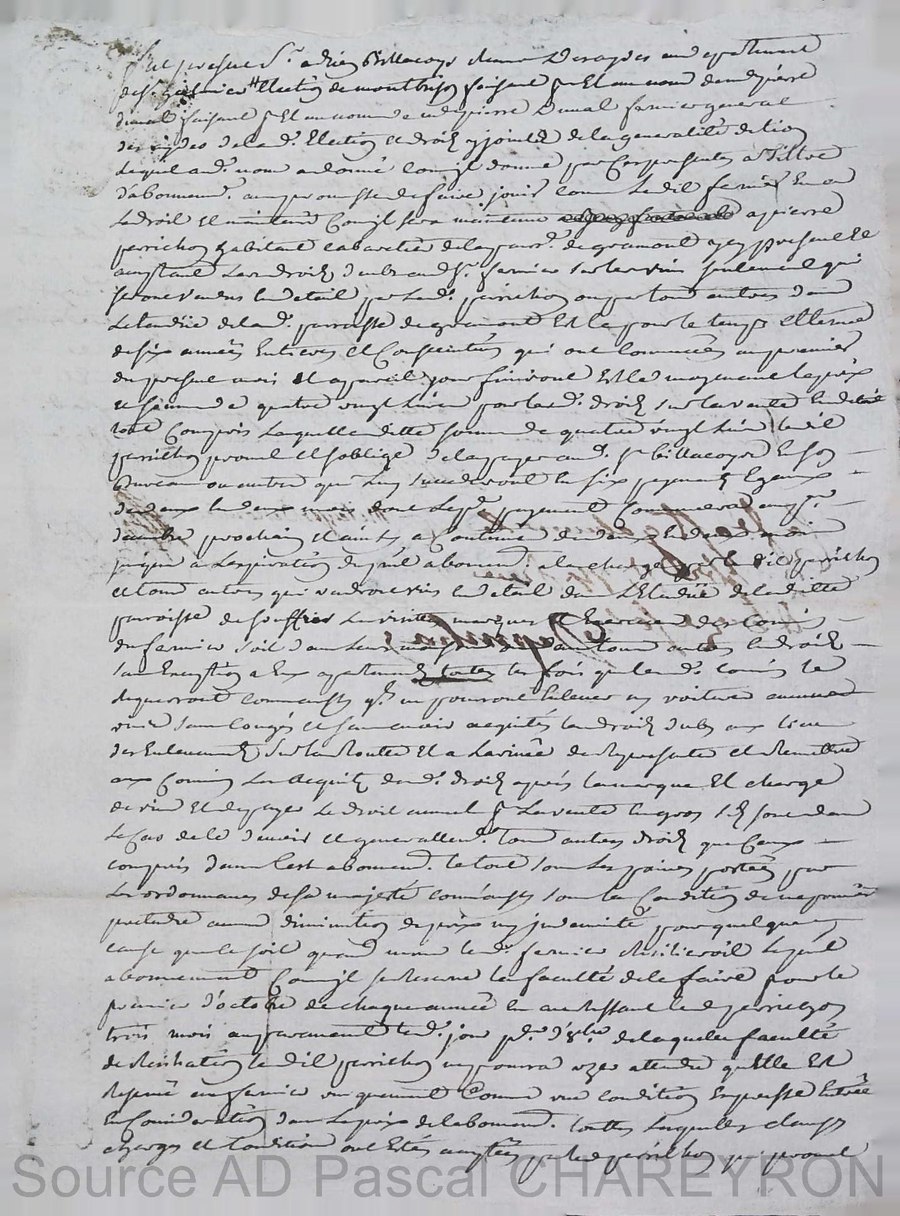 fut present Sr adrien Billacoys directeur des aydes au departement
de St Election de montbrison faisant pr Et au nom de me pierre
dunal faisant pr Et au nom de me pierre Dunal fermier general
des aydes de lad. Election et droits y joints de la generalité de lion
Lequel aud. nom a donné comme il donne par ces presentes a Tiltre
d'abonnement aux promesses de faire jouir comme Le dit fermier En a
Le droit et maintenu Comme il sera maintenu a pierre
perrichon habitant cabaretier de la parr. de gramont y present Et
acceptant Les droits d'aubs aud. Sr. fermier sur les vins seulement qui
seront vendus En detail par Led. perrichon ou par tous autres dans
L'étendüe de lad. parroisse de gramont Et ce pour le temps et terme
de six années Entieres et Consecutives qui ont Commencées au premier
du present mois Et a pareil jour finiront Et ce moyennant le prix
et somme de quatre vingt livres pour lesd. droits sur la vente En detail
tout Compris Laquelle ditte somme de quatre vingt livres led.
perrichon promet Et s'oblige de la payer aud. Sr billacoys En son
Bureau ou autres qui luy succederont En six payements Egaux
de deux En deux mois dont Le pr. payement Commencera au pr.
prochain Et ainsy a Continuer de deux En deux mois
jusqu'a L'expiration du p.nt abonnem. a la charge par le dit perrichon
et tous autres qui vendront vin En detail dans L'Etendüe de la ditte
parroisse de souffrir Les visites marques et Exercices des Commis
du fermier soit dans leurs
sans Exception a Eux appartenant toutes les fois que lesd. Commis le
requeront comme aussy qu'ils ne pourront Enlever ny voiturer aucun
vin sans Congés et sans avoir acquités les droits d'aubs aux lieux
des Enlevements sur la Route Et a L'arrivée de Representer et Remettre
aux Commis Les acquits desd. droits après la marque Et charge
de vin Et de payer Le droit annuel pr La vente En gros s'ils sont dans
Le Cas de le devoir et generallem. tous autres droits que Ceux
compris dans Cest abonnem. le tout sous Les peines portées par
Les ordonnances de sa majesté comme aussy sous la Condition de ne pouvoir
pretendre aucune diminution de prix ny indemnité pour quelque
cause que ce soit quand même led. fermier Resilieroit Le p.nt
abonnement Comme il se reserve la faculté de le faire pour le
premier d'octobre de chaque année En avertissant led. perrichon
trois mois auparavant led. jour pr. d'8bre de laquelle faculté
de Resiliation le dit perrichon ne pourra user attendu qu'Elle Est
Reservée au fermier uniquement Comme une condition Expresse Entrée
En Consideration dans Le prix de L'abonnem. touttes Lesquelles clauses
charges et Conditions ont Etés acceptées par led. perrichon qui promet
Source AD Pascal CHAREYRON